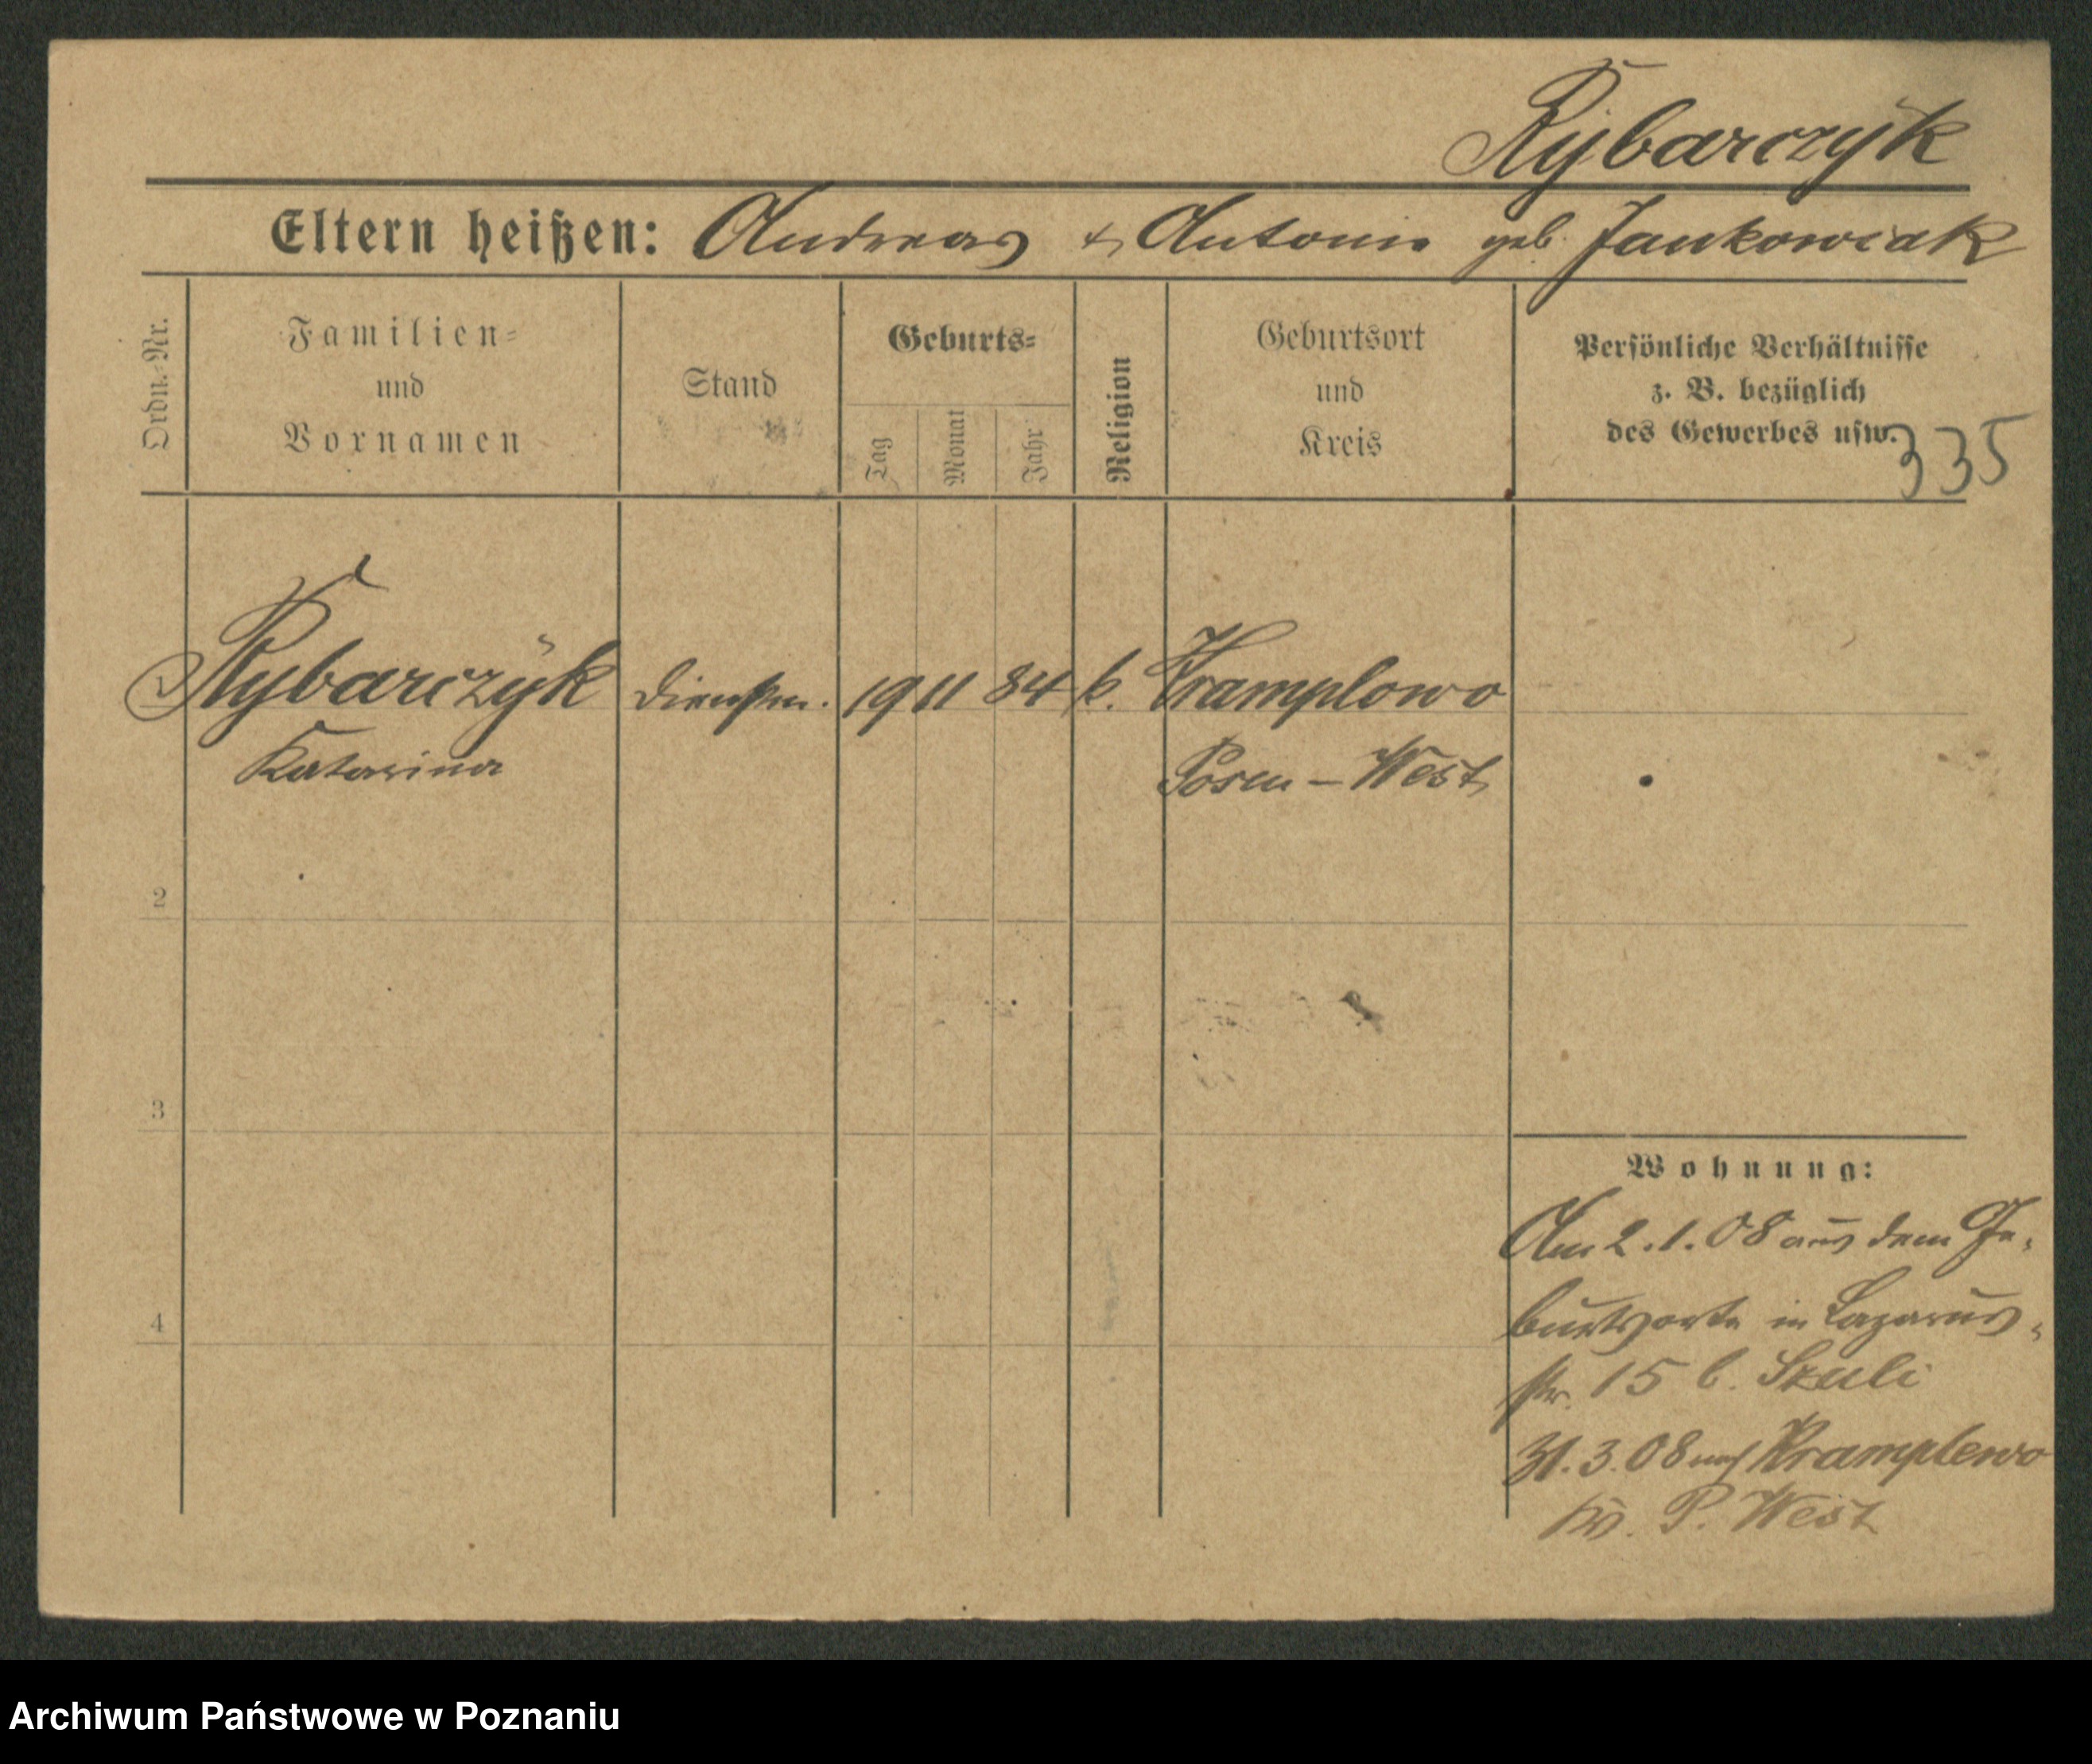 Rybarczÿk
Eltern heißen: Andreas & Antonie geb. Jankowiak
Ordn.-Nr.
Familien-
und
Vornamen
Stand
Geburts-
Tag
Monat
Jahr
Religion
Geburtsort
und
Kreis
Persönliche Verhältnisse
z. B. bezüglich
des Gewerbes usw.
335
1 Rybarczÿk Dienstm. 19 11 84 k. Kramplewo
Katarina Posen-West
2
3
4
Wohnung:
Am 2.1.08 aus dem Ge-
burtsorte in Lazarus-
str. 15 b. Szuli
31.3.08 nach Kramplewo
Kr. P. West
Archiwum Państwowe w Poznaniu